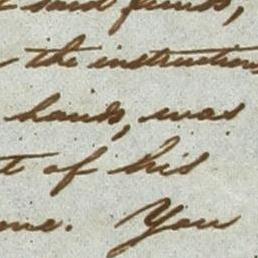 said funds,
the instructions
hands, was
t of his
me. You